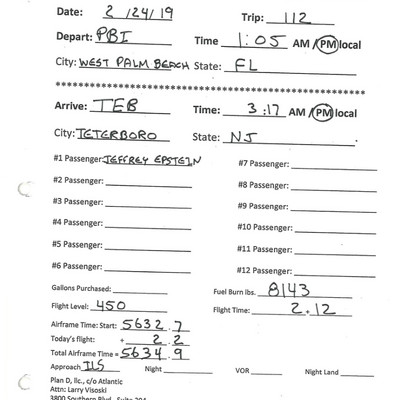 Date: 2/24/19 Trip: 112
Depart: PBI Time 1:05 AM / PM local
City: WEST PALM BEACH State: FL
************************************************************
Arrive: TEB Time: 3:17 AM / PM local
City: TETERBORO State: NJ
#1 Passenger: JEFFREY EPSTEIN #7 Passenger:
#2 Passenger: #8 Passenger:
#3 Passenger: #9 Passenger:
#4 Passenger: #10 Passenger:
#5 Passenger: #11 Passenger:
#6 Passenger: #12 Passenger:
Gallons Purchased: Fuel Burn lbs. 8143
Flight Level: 450 Flight Time: 2.12
Airframe Time: Start: 5632.7
Today's flight: + 2.2
Total Airframe Time = 5634.9
Approach ILS Night VOR Night Land
Plan D, llc., c/o Atlantic
Attn: Larry Visoski
3800 Southern Blvd., Suite 204